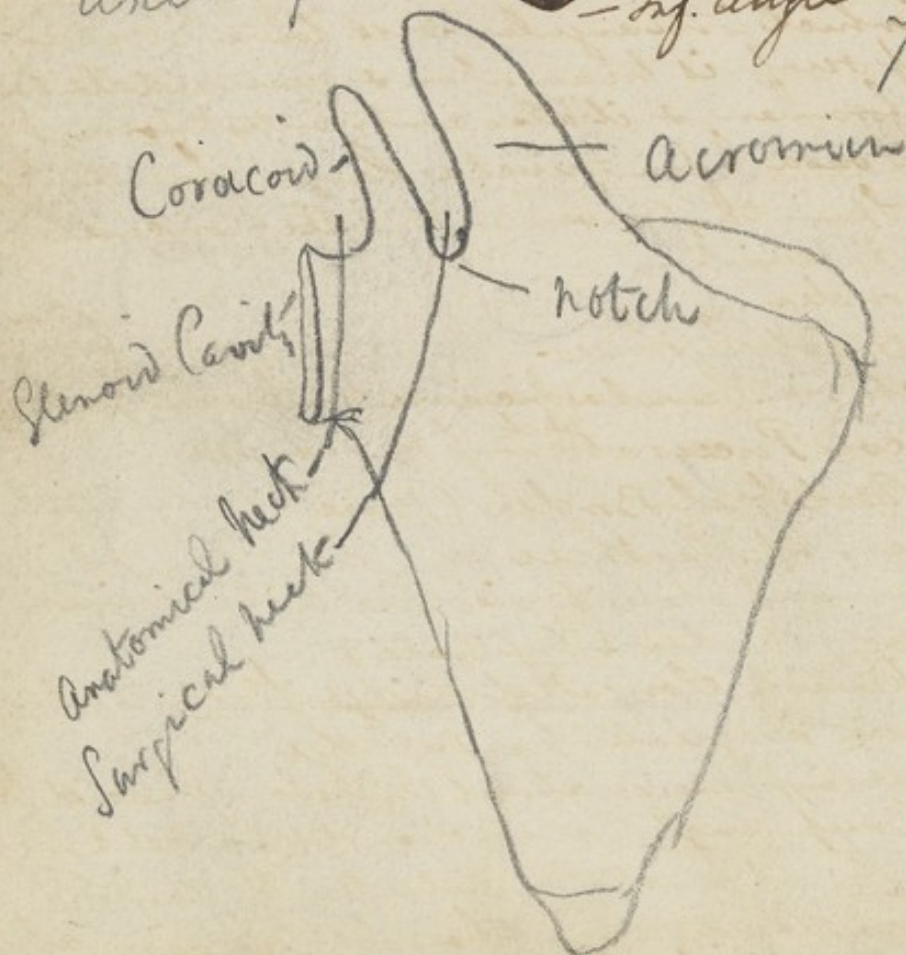 – Inf. angle
Coracoid
acromium
notch
Glenoid Cavity
Anatomical neck
Surgical neck